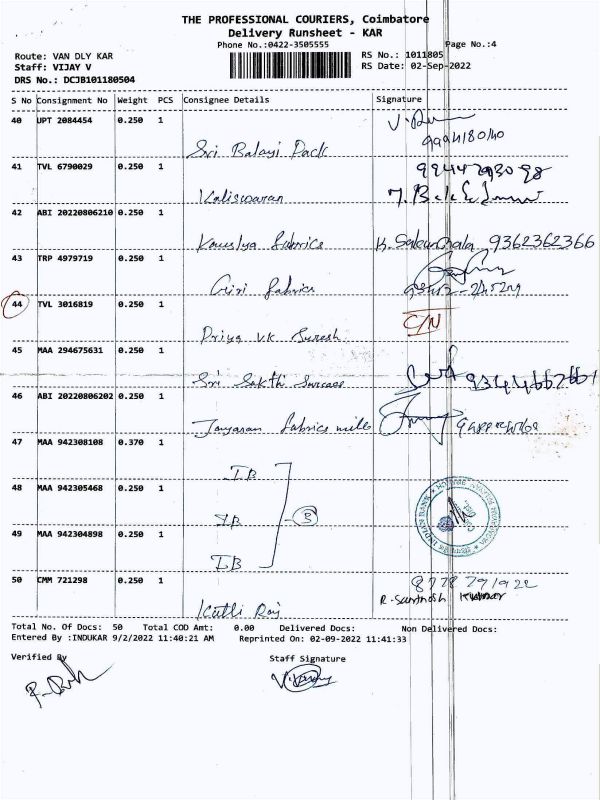 THE PROFESSIONAL COURIERS, Coimbatore
Delivery Runsheet - KAR
Phone No.:0422-3505555
Page No.:4
Route: VAN DLY KAR
RS No.: 1011805
Staff: VIJAY V
RS Date: 02-Sep-2022
DRS No.: DCJB101180504
S No Consignment No Weight PCS Consignee Details Signature
40 UPT 2084454 0.250 1
Sri Balaji Pack
41 TVL 6790029 0.250 1
Kaliswaran
42 ABI 20220806210 0.250 1
Kauslya fabrics 9362362366
43 TRP 4979719 0.250 1
Giri fabrics
44 TVL 3016819 0.250 1
C/N
Priya VK Suresh
45 MAA 294675631 0.250 1
Sri Sakthi
46 ABI 20220806202 0.250 1
fabrics mills
47 MAA 942308108 0.370 1
IB
48 MAA 942305468 0.250 1
IB
3
INDIAN BANK
49 MAA 942304898 0.250 1
IB
50 CMM 721298 0.250 1
R. Santhosh Kumar
Total No. Of Docs: 50 Total COD Amt: 0.00 Delivered Docs: Non Delivered Docs:
Entered By :INDUKAR 9/2/2022 11:40:21 AM Reprinted On: 02-09-2022 11:41:33
Verified By Staff Signature